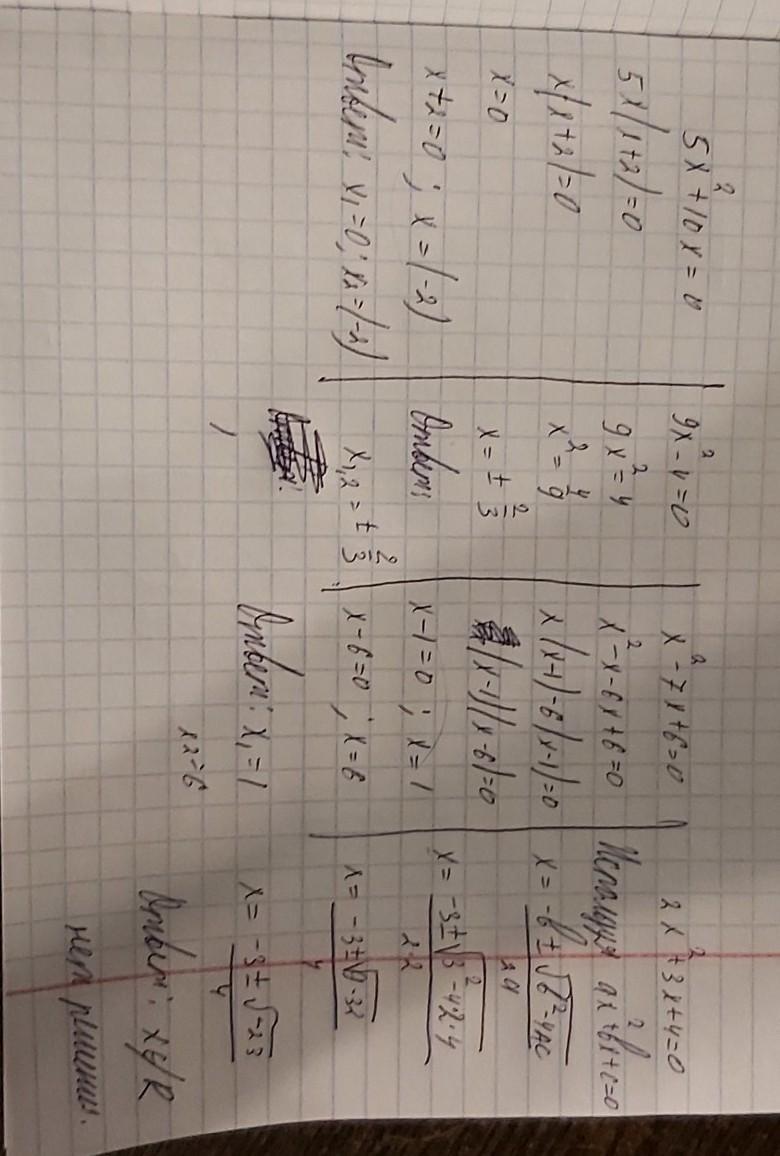 5x² + 10x = 0
5x(x+2) = 0
x(x+2) = 0
x = 0
x+2=0 ; x = (-2)
Ответ: x₁ = 0; x₂ = (-2)
9x² - 4 = 0
9x² = 4
x² = 4/9
x = ± 2/3
Ответ:
x₁,₂ = ± 2/3
x² - 7x + 6 = 0
x² - x - 6x + 6 = 0
x(x-1) - 6(x-1) = 0
(x-1)(x-6) = 0
x-1=0 ; x = 1
x-6=0 ; x = 6
Ответ: x₁ = 1
x₂ = 6
2x² + 3x + 4 = 0
Используя ax² + bx + c = 0
x = -b ± √b² - 4ac / 2a
x = -3 ± √3² - 4·2·4 / 2·2
x = -3 ± √9 - 32 / 4
x = -3 ± √-23 / 4
Ответ: x∉R
нет решения.